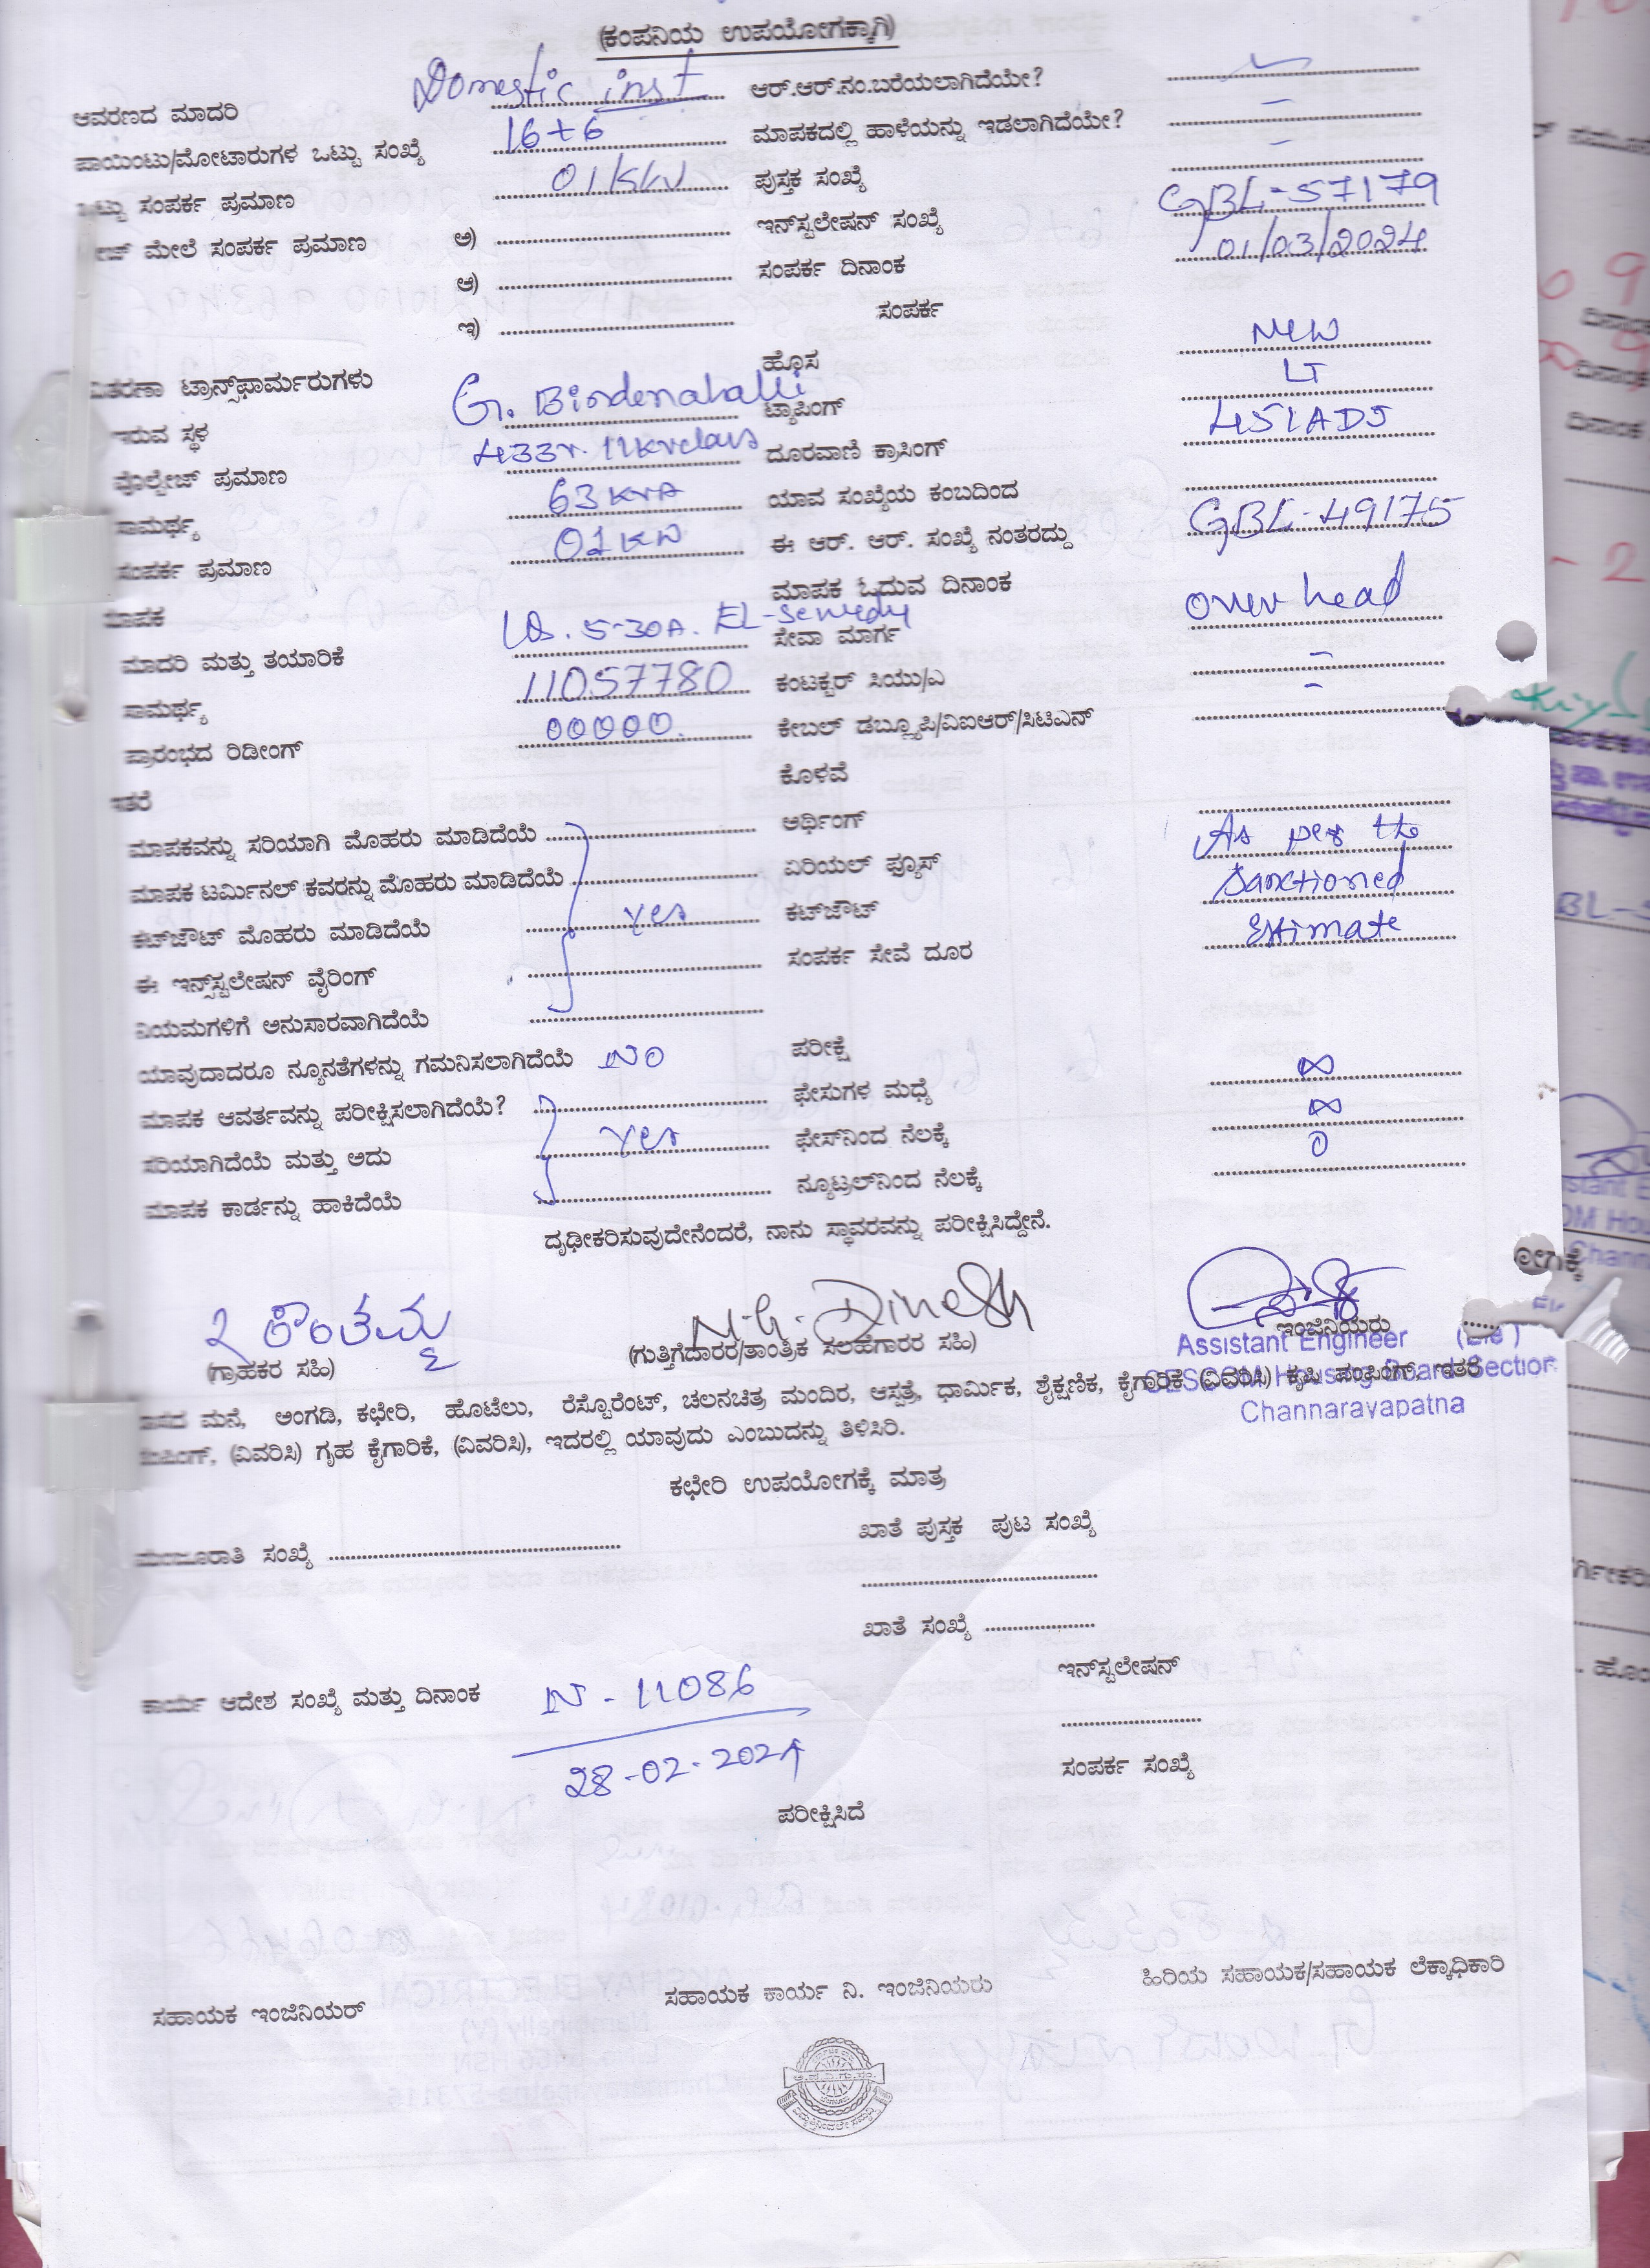 (ಕಂಪನಿಯ ಉಪಯೋಗಕ್ಕಾಗಿ)
ಆವರಣದ ಮಾದರಿ Domestic inst ಆರ್.ಆರ್.ನಂ.ಬರೆಯಲಾಗಿದೆಯೇ?
ಪಾಯಿಂಟು/ಮೋಟಾರುಗಳ ಒಟ್ಟು ಸಂಖ್ಯೆ 16+6 ಮಾಪಕದಲ್ಲಿ ಹಾಳೆಯನ್ನು ಇಡಲಾಗಿದೆಯೇ? –
ಒಟ್ಟು ಸಂಪರ್ಕ ಪ್ರಮಾಣ 01KW ಪುಸ್ತಕ ಸಂಖ್ಯೆ –
ಮೇಲೆ ಸಂಪರ್ಕ ಪ್ರಮಾಣ ಅ) ಇನ್‌ಸ್ಟಲೇಷನ್ ಸಂಖ್ಯೆ GBL-57179
ಆ) ಸಂಪರ್ಕ ದಿನಾಂಕ 01/03/2024
ಇ) ಸಂಪರ್ಕ
ವಿತರಣಾ ಟ್ರಾನ್ಸ್‌ಫಾರ್ಮರುಗಳು ಹೊಸ NEW
ಇರುವ ಸ್ಥಳ G. Bindenahalli ಟ್ಯಾಪಿಂಗ್ LT
ವೊಲ್ಟೇಜ್ ಪ್ರಮಾಣ 433v. 11kvclass ದೂರವಾಣಿ ಕ್ರಾಸಿಂಗ್ 451ADJ
ಸಾಮರ್ಥ್ಯ 63 KVA ಯಾವ ಸಂಖ್ಯೆಯ ಕಂಬದಿಂದ
ಸಂಪರ್ಕ ಪ್ರಮಾಣ 01 KW ಈ ಆರ್. ಆರ್. ಸಂಖ್ಯೆ ನಂತರದ್ದು GBL-49175
ಮಾಪಕ ಮಾಪಕ ಓದುವ ದಿನಾಂಕ
ಮಾದರಿ ಮತ್ತು ತಯಾರಿಕೆ 5-30A. EL-Sewedy ಸೇವಾ ಮಾರ್ಗ over head
ಸಾಮರ್ಥ್ಯ 11057780 ಕಂಟಕ್ಟರ್ ಸಿಯು/ಎ –
ಪ್ರಾರಂಭದ ರಿಡೀಂಗ್ 00000. ಕೇಬಲ್ ಡಬ್ಲ್ಯೂಪಿ/ವಿಐಆರ್/ಸಿಟಿಎನ್ –
ಇತರೆ ಕೊಳವೆ
ಮಾಪಕವನ್ನು ಸರಿಯಾಗಿ ಮೊಹರು ಮಾಡಿದೆಯೆ ಅರ್ಥಿಂಗ್
ಮಾಪಕ ಟರ್ಮಿನಲ್ ಕವರನ್ನು ಮೊಹರು ಮಾಡಿದೆಯೆ ಏರಿಯಲ್ ಫ್ಯೂಸ್ As per the
ಕಟ್‌ಔಟ್ ಮೊಹರು ಮಾಡಿದೆಯೆ Yes ಕಟ್‌ಔಟ್ Sanctioned
ಈ ಇನ್ಸ್‌ಸ್ಟಲೇಷನ್ ವೈರಿಂಗ್ ಸಂಪರ್ಕ ಸೇವೆ ದೂರ Estimate
ನಿಯಮಗಳಿಗೆ ಅನುಸಾರವಾಗಿದೆಯೆ
ಯಾವುದಾದರೂ ನ್ಯೂನತೆಗಳನ್ನು ಗಮನಿಸಲಾಗಿದೆಯೆ NO ಪರೀಕ್ಷೆ
ಮಾಪಕ ಆವರ್ತವನ್ನು ಪರೀಕ್ಷಿಸಲಾಗಿದೆಯೆ? ಫೇಸುಗಳ ಮಧ್ಯೆ ∞
ಸರಿಯಾಗಿದೆಯೆ ಮತ್ತು ಅದು Yes ಫೇಸ್‌ನಿಂದ ನೆಲಕ್ಕೆ ∞
ಮಾಪಕ ಕಾರ್ಡನ್ನು ಹಾಕಿದೆಯೆ ನ್ಯೂಟ್ರಲ್‌ನಿಂದ ನೆಲಕ್ಕೆ 0
ದೃಢೀಕರಿಸುವುದೇನೆಂದರೆ, ನಾನು ಸ್ಥಾವರವನ್ನು ಪರೀಕ್ಷಿಸಿದ್ದೇನೆ.
N.G. Dinesh
(ಗ್ರಾಹಕರ ಸಹಿ) (ಗುತ್ತಿಗೆದಾರರ/ತಾಂತ್ರಿಕ ಸಲಹೆಗಾರರ ಸಹಿ) ಇಂಜಿನಿಯರು
Assistant Engineer (Ele)
CESCOM Housing Board Section
Channarayapatna
ವಾಸದ ಮನೆ, ಅಂಗಡಿ, ಕಛೇರಿ, ಹೊಟೆಲು, ರೆಸ್ಟೊರೆಂಟ್, ಚಲನಚಿತ್ರ ಮಂದಿರ, ಆಸ್ಪತ್ರೆ, ಧಾರ್ಮಿಕ, ಶೈಕ್ಷಣಿಕ, ಕೈಗಾರಿಕೆ (ವಿವರಿಸಿ) ಕೃಷಿ ಪಂಪಿಂಗ್, ಇತರೆ
ಪಂಪಿಂಗ್, (ವಿವರಿಸಿ) ಗೃಹ ಕೈಗಾರಿಕೆ, (ವಿವರಿಸಿ), ಇದರಲ್ಲಿ ಯಾವುದು ಎಂಬುದನ್ನು ತಿಳಿಸಿರಿ.
ಕಛೇರಿ ಉಪಯೋಗಕ್ಕೆ ಮಾತ್ರ
ಮಂಜೂರಾತಿ ಸಂಖ್ಯೆ ಖಾತೆ ಪುಸ್ತಕ ಪುಟ ಸಂಖ್ಯೆ
ಖಾತೆ ಸಂಖ್ಯೆ
ಇನ್‌ಸ್ಟಲೇಷನ್
ಕಾರ್ಯ ಆದೇಶ ಸಂಖ್ಯೆ ಮತ್ತು ದಿನಾಂಕ N-11086
28-02-2024
ಸಂಪರ್ಕ ಸಂಖ್ಯೆ
ಪರೀಕ್ಷಿಸಿದೆ
ಸಹಾಯಕ ಇಂಜಿನಿಯರ್ ಸಹಾಯಕ ಕಾರ್ಯ ನಿ. ಇಂಜಿನಿಯರು ಹಿರಿಯ ಸಹಾಯಕ/ಸಹಾಯಕ ಲೆಕ್ಕಾಧಿಕಾರಿ